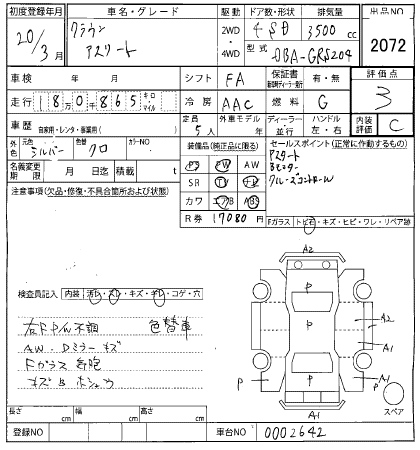 初度登録年月 車名・グレード 駆動 ドア数・形状 排気量 出品NO
20/3月 クラウン アスリート 2WD・4WD 4SD 3500cc 2072
型式 DBA-GRS204
車検 年 月 シフト FA 保証書 有・無 評価点
走行 18万0千865 キロ マイル 冷房 AAC 燃料 G 3
車歴 自家用・レンタ・事業用( ) 定員 5人 外車モデル 年 ディーラー・並行 ハンドル 左・右 内装評価 C
外色 元色 シルバー 色替 クロ カラーNO 装備品(純正品に限る) セールスポイント(正常に動作するもの)
名義変更期限 月 日迄 積載 t PS PW AW アスリート
SR TV ナビ
注意事項(欠品・修復・不具合箇所および状態) カワ エアB ABS クルーズコントロール
R券 17080円 Fガラス トビ石・キズ・ヒビ・ワレ・リペア跡
A2
検査員記入 内装 汚レ・スレ・キズ・キレ・コゲ・穴
P
右FP/W不調 色替車
A2
AW、Dミラーキズ
P
A1
Fガラス気泡
P P
キズ
A1 スペア
長さ cm 幅 cm 高さ cm
登録NO 車台NO 0002642